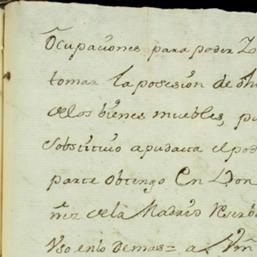 Ocupaciones para poder
tomar la posesion de
de los bienes muebles,
Sobstituio apudacta el pod
parte obtengo En Don
ñez de la Madrid Reserb
Vso en lo Demas = a